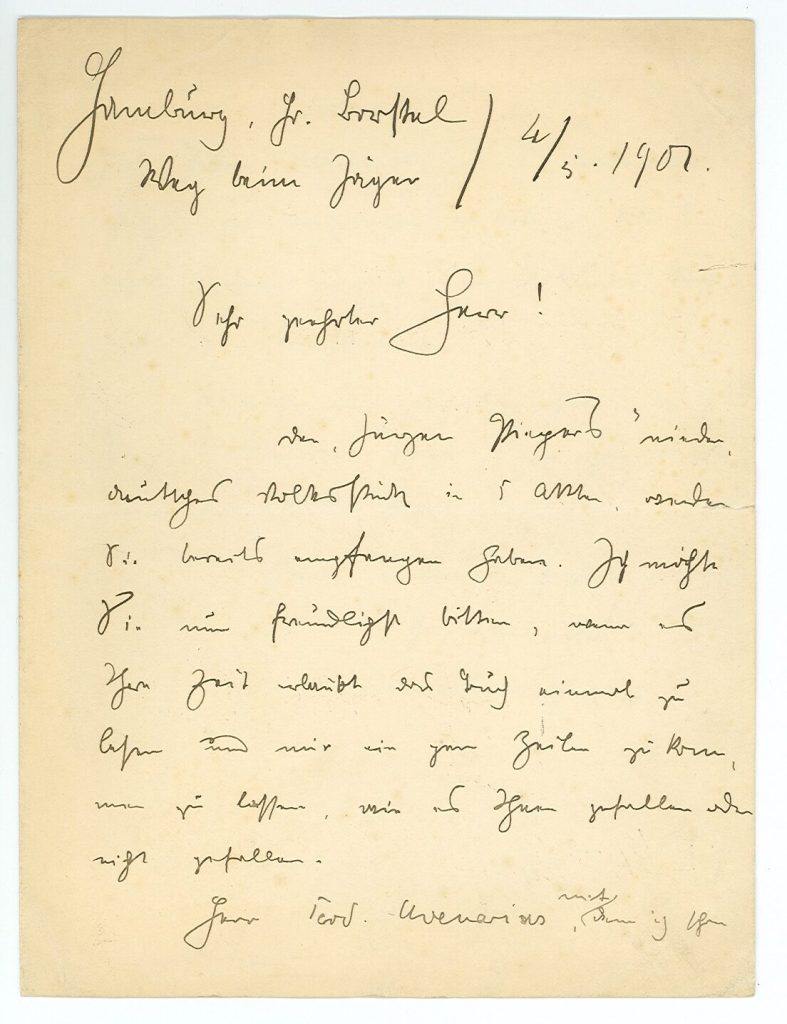 Hamburg, Gr. Borstel
Weg beim Jäger / 4/5. 1901.
Sehr geehrter Herr!
den „Jürgen Piepers" nieder-
deutsches Volksstück in 5 Akten, werden
Sie bereits empfangen haben. Ich möchte
Sie nun freundlichst bitten, wenn es
Ihre Zeit erlaubt das Buch einmal zu
lesen und mir ein paar Zeilen zu kom-
men zu lassen, wie es Ihnen gefallen oder
nicht gefallen.
Herr Ferd. Avenarius, mit dem ich Ihren